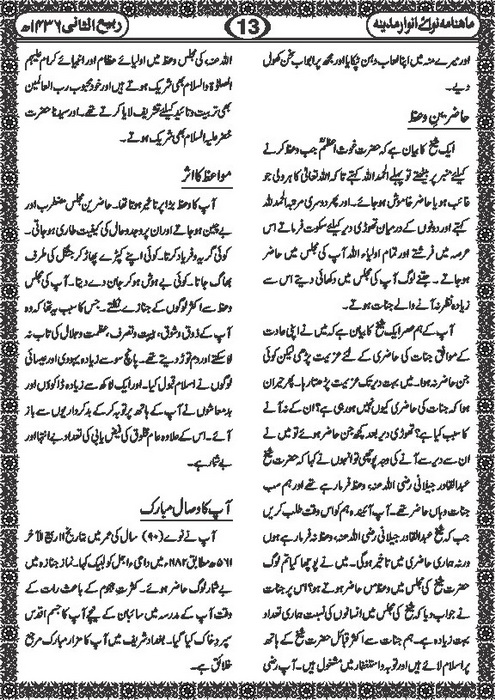 ماہنامہ نوائے انوار مدینہ
13
ربیع الثانی ۱۴۳۶ھ
اور میرے منہ میں اپنا لعاب دہن ٹپکایا اور مجھ پر ابواب سخن کھول
دیے۔
حاضرین وعظ
ایک شیخ کا بیان ہے کہ حضرت غوث اعظمؓ جب وعظ کرنے
کیلئے منبر پر بیٹھتے تو پہلے الحمد للہ کہتے تا کہ اللہ تعالیٰ کا ہر ولی جو
غائب ہو یا حاضر خاموش ہو جائے۔ اور پھر دوسری مرتبہ الحمد للہ
کہتے اور دونوں کے درمیان تھوڑی دیر کیلئے سکوت فرماتے اس
عرصہ میں فرشتے اور تمام اولیاء اللہ آپ کی مجلس میں حاضر
ہو جاتے۔ جتنے لوگ آپ کی مجلس میں دکھائی دیتے اس سے
زیادہ نظر نہ آنے والے جنات ہوتے۔
آپ کے ہم عصر ایک شیخ کا بیان ہے کہ میں نے اپنی عادت
کے موافق جنات کی حاضری کے لئے عزیمت پڑھی لیکن کوئی
جن حاضر نہ ہوا۔ میں بہت دیر تک عزیمت پڑھتا رہا۔ پھر حیران
ہوا کہ جنات کی حاضری کیوں نہیں ہو رہی ہے؟ ان کے نہ آنے
کا سبب کیا ہے؟ تھوڑی دیر بعد کچھ جن حاضر ہوئے تو میں نے
ان سے دیر سے آنے کی وجہ پوچھی تو انہوں نے کہا کہ حضرت شیخ
عبدالقادر جیلانی رضی اللہ عنہ، وعظ فرما رہے تھے اور ہم سب
جنات وہاں حاضر تھے۔ آپ آئندہ ہم کو اس وقت طلب کریں
جب کہ شیخ عبدالقادر جیلانی رضی اللہ عنہ، وعظ نہ فرما رہے ہوں
ورنہ ہماری حاضری میں تاخیر ہو گی۔ میں نے پوچھا کیا تم لوگ
حضرت شیخ کی مجلس میں وعظ میں حاضر ہوتے ہو؟ اس پر جنات
نے جواب دیا کہ شیخ کی مجلس میں انسانوں کی نسبت ہماری تعداد
بہت زیادہ ہے۔ ہم جنات سے اکثر قبائل حضرت شیخ کے ہاتھ
پر اسلام لائے ہیں اور توبہ و استغفار میں مشغول ہیں۔ آپ رضی
اللہ عنہ، کی مجلس وعظ میں اولیائے عظام اور انبیائے کرام علیہم
الصلوٰۃ والسلام بھی شریک ہوتے ہیں اور خود محبوب رب العالمین
بھی تربیت و تائید کیلئے تشریف لایا کرتے تھے۔ اور سیدنا حضرت
خضر علیہ السلام بھی شریک ہوتے۔
مواعظ کا اثر
آپ کا وعظ بڑا پرتاثیر ہوتا تھا۔ حاضرین مجلس مضطرب اور
بے چین ہو جاتے اور ان پر وجد و حال کی کیفیت طاری ہو جاتی۔
کوئی گریہ و فریاد کرتا۔ کوئی اپنے کپڑے پھاڑ کر جنگل کی طرف
بھاگ جاتا۔ کوئی بے ہوش ہو کر جان دے دیتا۔ آپ کی مجلس
وعظ سے اکثر لوگوں کے جنازے نکلتے۔ جس کا سبب یہ تھا کہ وہ
آپ کے ذوق و شوق، ہیبت و تصرف، عظمت و جلال کی تاب نہ
لا سکتے اور دم توڑ دیتے تھے۔ پانچ سو سے زیادہ یہودی اور عیسائی
لوگوں نے اسلام قبول کیا۔ اور ایک لاکھ سے زیادہ ڈاکوؤں اور
بدمعاشوں نے آپ کے ہاتھ پر توبہ کر کے بدکرداریوں سے باز
آئے۔ اس کے علاوہ عام مخلوق کی فیض یابی کی تعداد بے انتہا اور
بے شمار ہے۔
آپ کا وصال مبارک
آپ نے نوے (۹۰) سال کی عمر میں بتاریخ ۱۱ ربیع الآخر
۵۶۱ھ مطابق ۱۱۸۲ء میں داعی اجل کو لبیک کہا۔ نماز جنازہ میں
بے شمار لوگ حاضر ہوئے۔ کثرت ہجوم کے باعث رات کے
وقت آپ کے مدرسہ میں سائبان کے نیچے آپ کا جسم اقدس
سپرد خاک کیا گیا۔ بغداد شریف میں آپ کا مزار مبارک مرجع
خلائق ہے۔